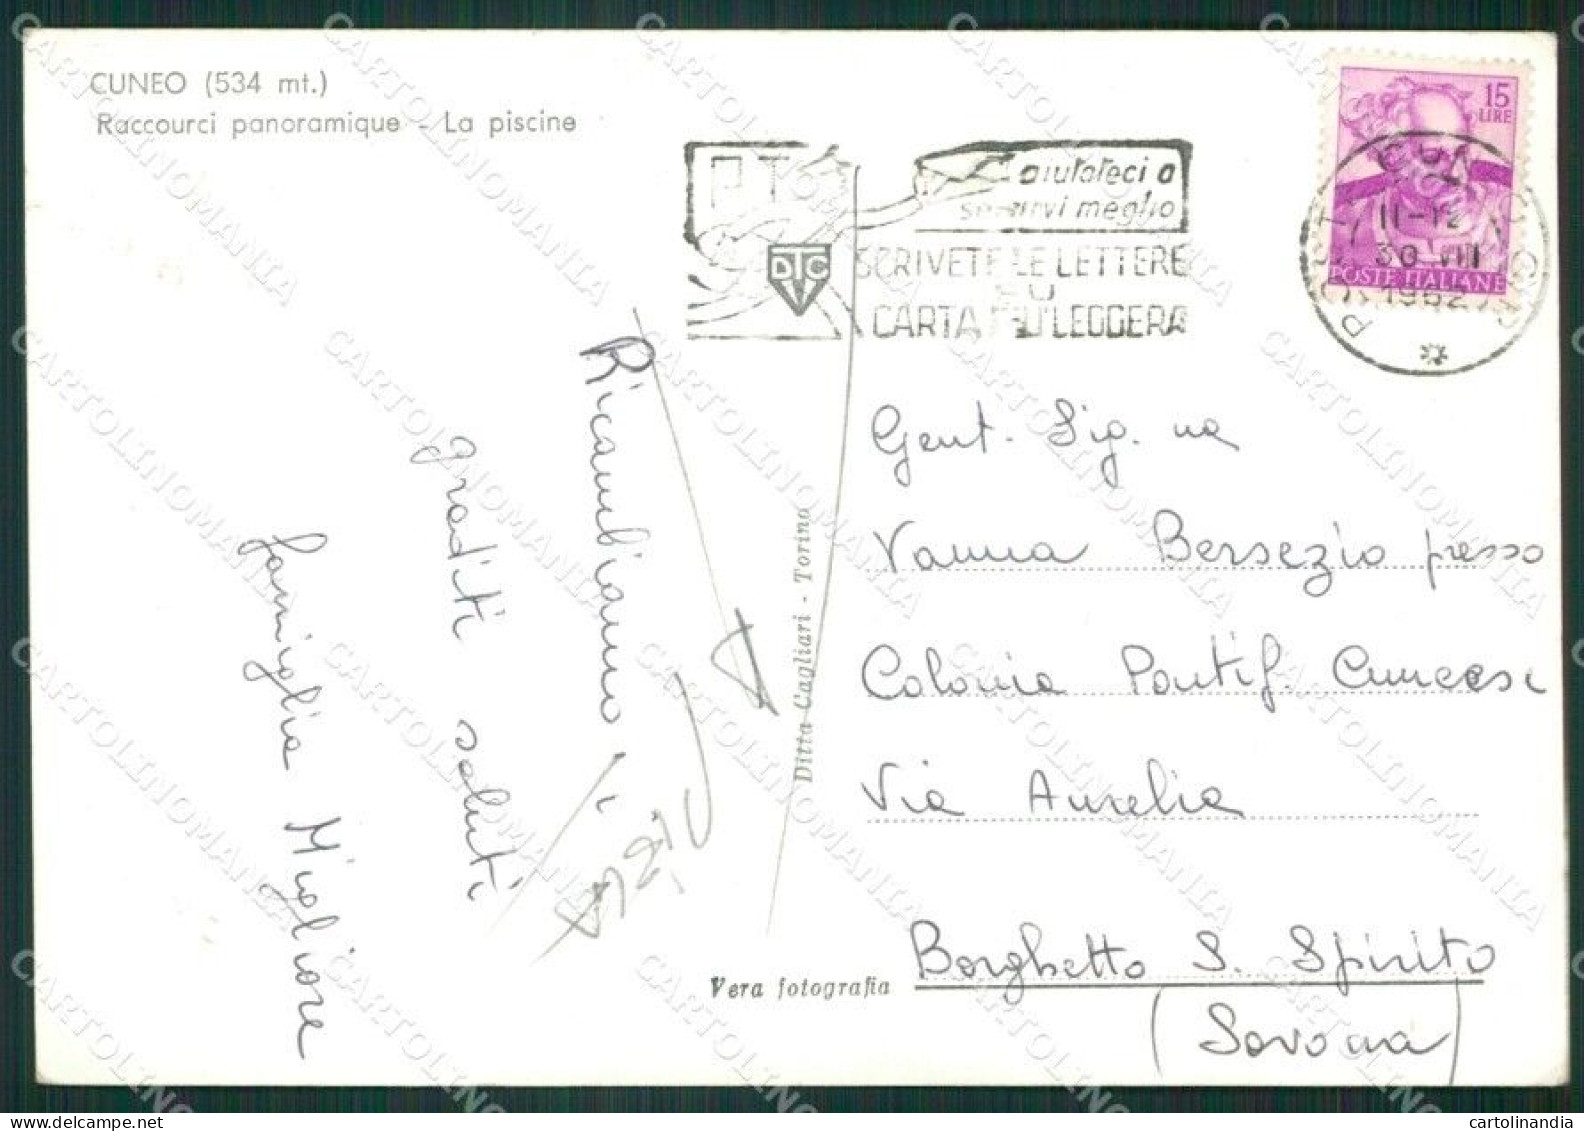 CUNEO (534 mt.)
Raccourci panoramique - La piscine
15
LIRE
POSTE ITALIANE
11-12
30 VII
1962
P T
aiutateci a
servirvi meglio
SCRIVETE LE LETTERE
SU
CARTA PIU' LEGGERA
Ricambiamo i
graditi saluti
famiglia Migliore
Ditta Cagliari - Torino
Vera fotografia
Gent. Sig.na
Vanna Bersezio presso
Colonia Pontif. Cuneese
Via Aurelia
Borghetto S. Spirito
(Savona)
CARTOLINOMANIA
cartolinandia